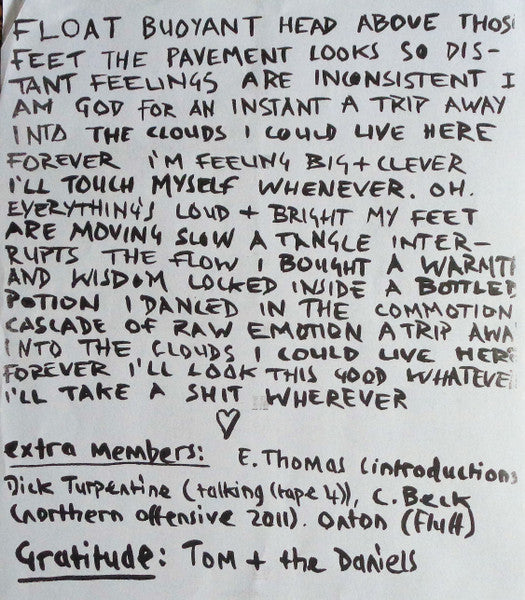 FLOAT BUOYANT HEAD ABOVE THOS
FEET THE PAVEMENT LOOKS SO DIS-
TANT FEELINGS ARE INCONSISTENT I
AM GOD FOR AN INSTANT A TRIP AWAY
INTO THE CLOUDS I COULD LIVE HERE
FOREVER I'M FEELING BIG + CLEVER
I'LL TOUCH MYSELF WHENEVER. OH.
EVERYTHING'S LOUD + BRIGHT MY FEET
ARE MOVING SLOW A TANGLE INTER-
RUPTS THE FLOW I BOUGHT A WARMTH
AND WISDOM LOCKED INSIDE A BOTTLED
POTION I DANCED IN THE COMMOTION
CASCADE OF RAW EMOTION A TRIP AWA
INTO THE CLOUDS I COULD LIVE HERE
FOREVER I'LL LOOK THIS GOOD WHATEVE
I'LL TAKE A SHIT WHEREVER
extra members: E. Thomas (introduction)
Dick Turpentine (talking (tape 4)), C. Beck
(northern offensive 2011). Onton (Fluff)
Gratitude: Tom + the Daniels